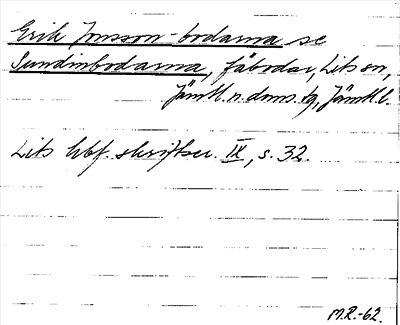 Erik Jonsson-bodarna se
Sundinbodarna, fäbodar, Lits sn,
Jämtl. n. doms. tg, Jämtl. l.
Lits hbf. skrifter. IX, s. 32.
M.R.-62.